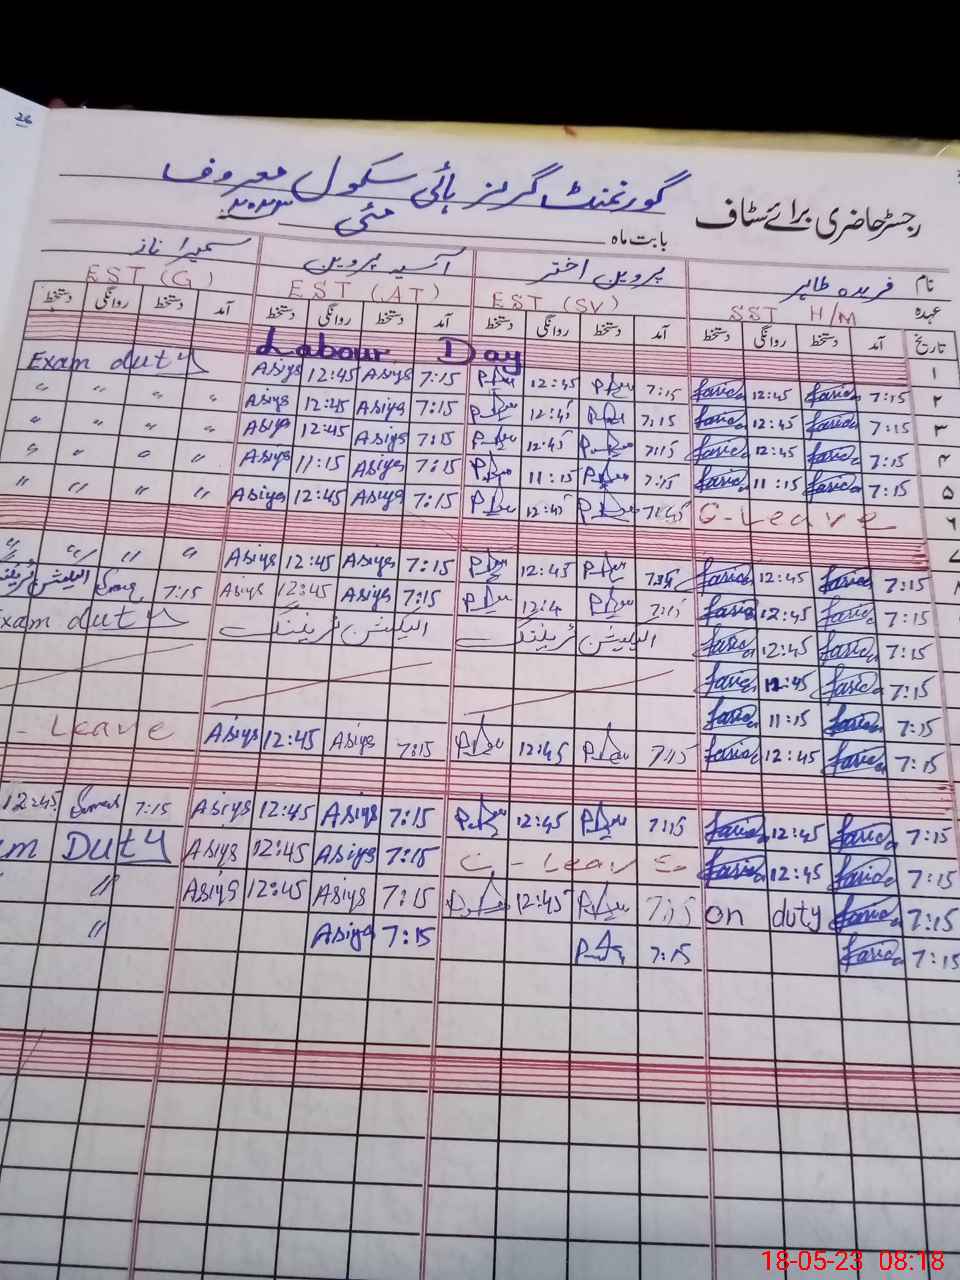 26
گورنمنٹ گرلز ہائی سکول معروف
رجسٹر حاضری برائے سٹاف
بابت ماہ مئی ۲۰۲۳
نام فریدہ طاہر پروین اختر آسیہ پروین سمیرا ناز
عہدہ SST H/M EST (SV) EST (AT) EST (G)
تاریخ آمد دستخط روانگی دستخط آمد دستخط روانگی دستخط آمد دستخط روانگی دستخط آمد دستخط روانگی دستخط
Labour Day ۱
Exam duty Asiya 12:45 Asiya 7:15 12:45 7:15 Farida 12:45 Farida 7:15 ۲
" " " " Asiya 12:45 Asiya 7:15 12:45 7:15 Farida 12:45 Farida 7:15 ۳
" " " " Asiya 12:45 Asiya 7:15 12:45 7:15 Farida 12:45 Farida 7:15 ۴
" " " " Asiya 11:15 Asiya 7:15 11:15 7:15 Farida 11:15 Farida 7:15 ۵
" " " " Asiya 12:45 Asiya 7:15 12:45 C-Leave ۶
۷
" " " " Asiya 12:45 Asiya 7:15 12:45 Farida 12:45 Farida 7:15 ۸
الیکشن ٹریننگ 7:15 Asiya 12:45 Asiya 7:15 12:4 7:15 Farida 12:45 Farida 7:15
Exam duty الیکشن ٹریننگ الیکشن ٹریننگ Farida 12:45 Farida 7:15
Farida 12:45 Farida 7:15
Farida 11:15 Farida 7:15
- Leave Asiya 12:45 Asiya 7:15 12:45 7:15 Farida 12:45 Farida 7:15
12:45 7:15 Asiya 12:45 Asiya 7:15 12:45 7:15 Farida 12:45 Farida 7:15
m Duty Asiya 12:45 Asiya 7:15 C-Leave Farida 12:45 Farida 7:15
" Asiya 12:45 Asiya 7:15 12:45 7:15 on duty Farida 7:15
" Asiya 7:15 7:15 Farida 7:15
18-05-23 08:18